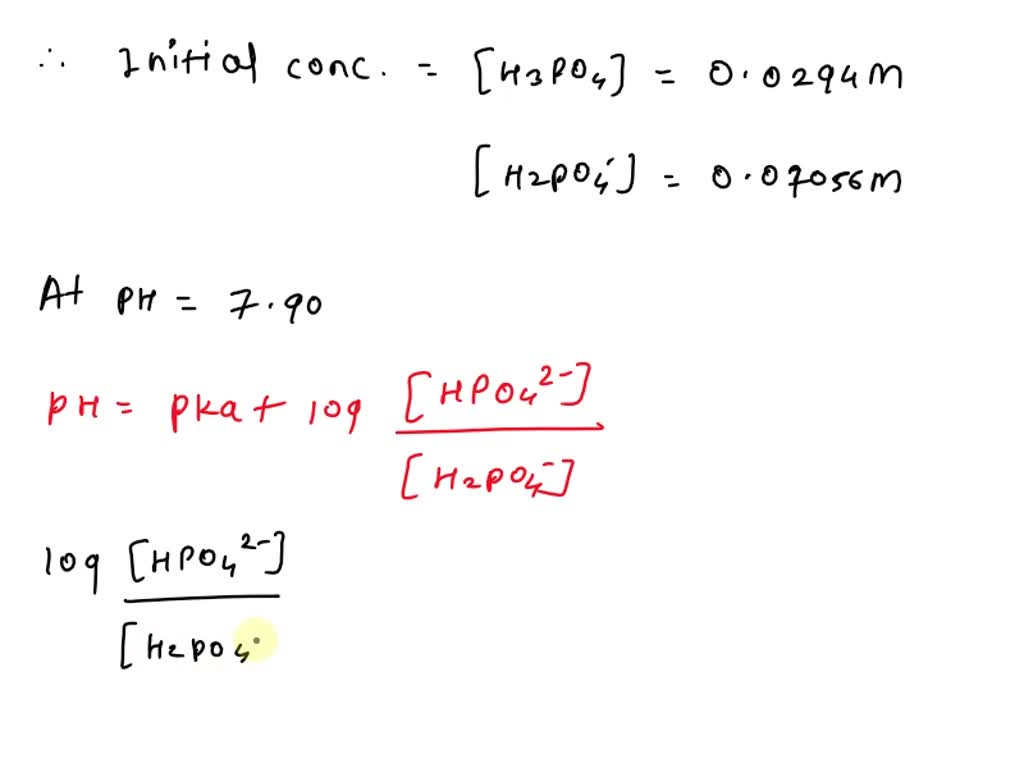 ∴ Initial conc. = [H3PO4] = 0.0294M
[H2PO4⁻] = 0.07056M
At PH = 7.90
PH = Pka + log [HPO4²⁻]
[H2PO4⁻]
log [HPO4²⁻]
[H2PO4